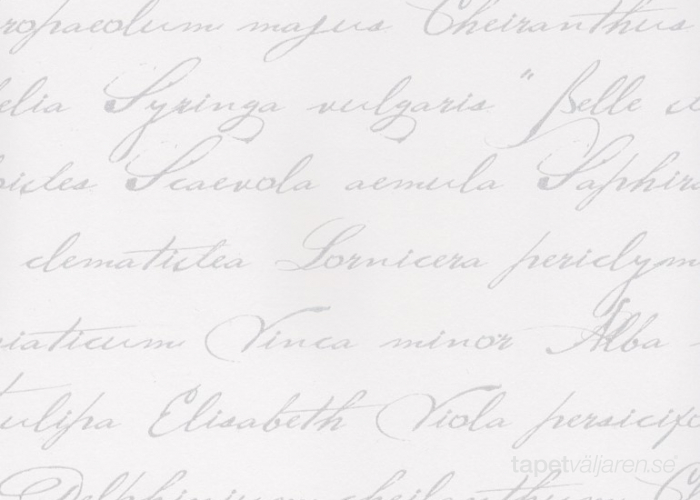 ropaeolum majus Cheiranthus
elia Syringa vulgaris "Belle
oides Scaevola aemula Saphir
clematidea Lornicera periclym
iaticum Vinca minor Alba
ulipa Elisabeth Viola persicifo
tapetväljaren.se
Delphinium cheilanthum